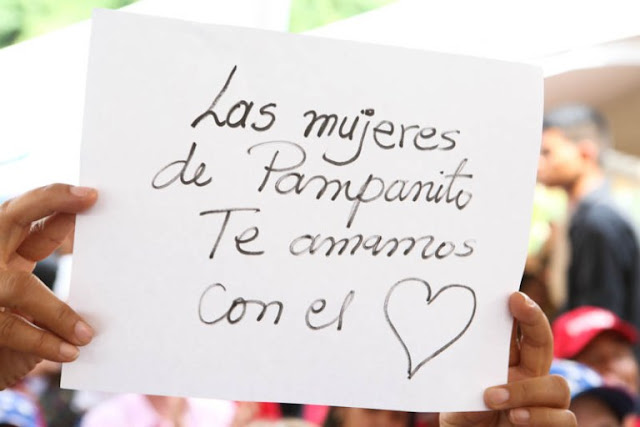 Las mujeres
de Pampanito
Te amamos
con el